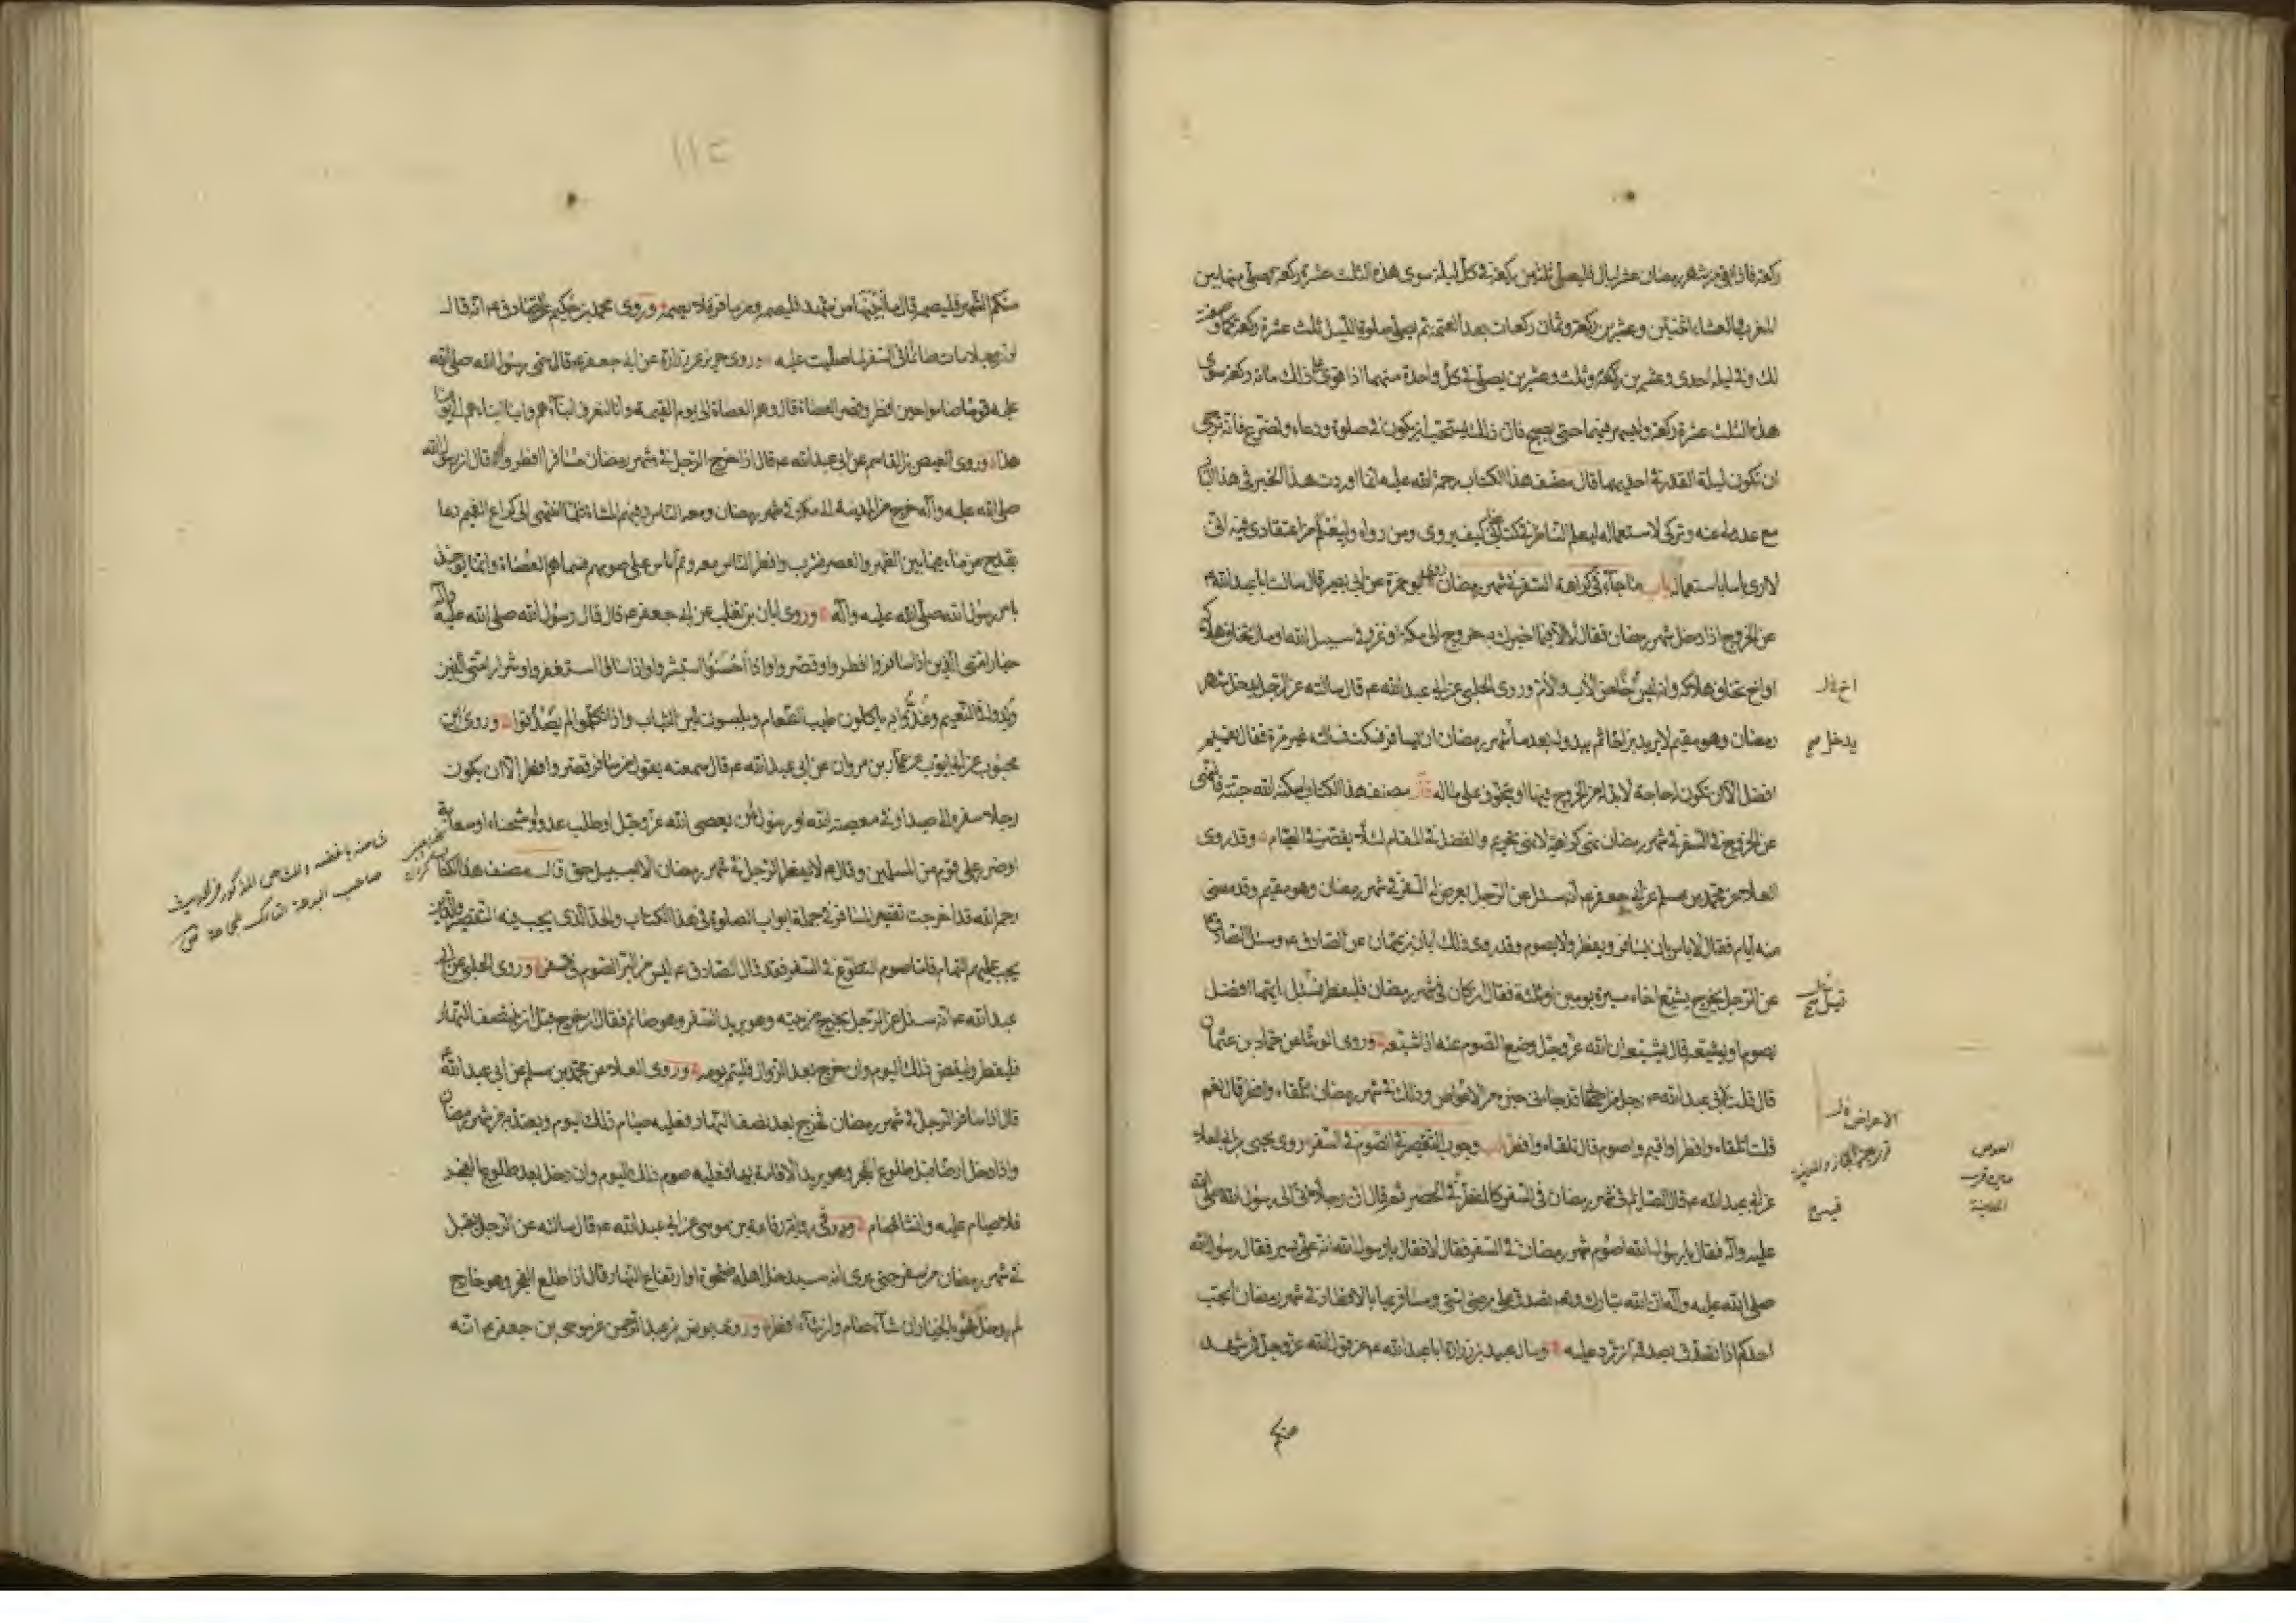 ركعة فاذا بقى من شهر رمضان عشر ليال فليصل ثلثين ركعة فى كل ليلة سوى هذه الثلث عشرة ركعة يصلى منها بين
المغرب والعشاء اثنتين وعشرين ركعة وثمان ركعات بعد العتمة ثم يصلى صلوة الليل ثلث عشرة ركعة كما وصفت
لك وفى ليلة احدى وعشرين ركعة وثلث وعشرين يصلى فى كل واحدة منهما اذا قوى على ذلك مائة ركعة سوى
هذه الثلث عشرة ركعة وليسهر فيهما حتى يصبح فان ذلك يستحب ان يكون فى صلوة ودعاء وتضرع فانه يرجى
ان تكون ليلة القدر فى احديهما قال مصنف هذا الكتاب رحمة الله عليه انما اوردت هذا الخبر فى هذا الباب
مع عدولى عنه وتركى لاستعماله ليعلم الناظر فى كتابى كيف يروى ومن رواه وليعلم من اعتقادى فيه انى
لا ارى باسا باستعماله باب ما جاء فى كراهة السفر فى شهر رمضان روى ابو حمزة عن ابى بصير قال سالت ابا عبد الله ع
عن الخروج اذا دخل شهر رمضان فقال لا الا فيما اخبرك به خروج الى مكة او غزو فى سبيل الله او مال تخاف هلاكه
او اخ تخاف هلاكه وانه ليس اخا من الاب والام وروى الحلبى عن ابى عبد الله ع قال سالته عن الرجل يدخل شهر
رمضان وهو مقيم لا يريد براحا ثم يبدو له بعد ما شهر رمضان ان يسافر فسكت فسالته غير مرة فقال يقيم
افضل الا ان تكون له حاجة لا بد له من الخروج فيها او يتخوف على ماله قال مصنف هذا الكتاب اسكنه الله جنته فالنهى
عن الخروج فى السفر فى شهر رمضان نهى كراهية لا نهى تحريم والفضل فى المقام لئلا يقصر فى الصيام وقد روى
العلا عن محمد بن مسلم عن ابى جعفر ع انه سئل عن الرجل يعرض له السفر فى شهر رمضان وهو مقيم وقد مضى
منه ايام فقال لا باس بان يسافر ويفطر ولا يصوم وقد روى ذلك ابان بن عثمان عن الصادق ع وسئل الصادق
عن الرجل يخرج يشيع اخاه مسيرة يومين او ثلثة فقال ان كان فى شهر رمضان فليفطر فسئل ايهما افضل
يصوم او يشيعه قال يشيعه ان الله عز وجل وضع الصوم عنه اذا شيعه وروى الوشا عن حماد بن عثمان
قال قلت لابى عبد الله ع رجل من اصحابنا قد جاءنى خبره من الاعوص وذلك فى شهر رمضان اتلقاه وافطر قال نعم
قلت اتلقاه وافطر او اقيم واصوم قال تلقاه وافطر باب وجوب التقصير فى الصوم فى السفر روى يحيى بن ابى العلاء
عن ابى عبد الله ع قال الصائم فى شهر رمضان فى السفر كالمفطر فى الحضر ثم قال ان رجلا اتى الى رسول الله صلى الله
عليه وآله فقال يا رسول الله اصوم شهر رمضان فى السفر فقال لا فقال يا رسول الله انه على يسير فقال رسول الله
صلى الله عليه وآله ان الله تبارك وتعالى تصدق على مرضى امتى ومسافريها بالافطار فى شهر رمضان ايحب
احدكم اذا تصدق بصدقة ان ترد عليه وسال عبيد بن زرارة ابا عبد الله ع عن قول الله عز وجل فمن شهد
منكم
اخ فل
يدخل
الاعراض فل
العوص
قرب
المدينة
١١٢
منكم الشهر فليصمه قال ما ابينها من شهد فليصمه ومن سافر فلا يصمه وروى محمد بن حكيم عن الصادق ع انه قال
لو ان رجلا مات صائما فى السفر لما صليت عليه وروى حريز عن زرارة عن ابى جعفر ع قال سمى رسول الله صلى الله
عليه قوما صاموا حين افطر وقصر العصاة قال وهم العصاة الى يوم القيمة وانا لنعرف ابناءهم وابناء ابناءهم الى يومنا
هذا وروى العيص بن القاسم عن ابى عبد الله ع قال اذا خرج الرجل فى شهر رمضان مسافرا افطر وقال ان رسول الله
صلى الله عليه وآله خرج من المدينة الى مكة فى شهر رمضان ومعه الناس وفيهم المشاة فلما انتهى الى كراع الغميم دعا
بقدح من ماء فيما بين الظهر والعصر فشرب وافطر الناس معه وتم اناس على صومهم فسماهم العصاة وانما يؤخذ
بامر رسول الله صلى الله عليه وآله وروى ابان بن تغلب عن ابى جعفر ع قال قال رسول الله صلى الله عليه وآله
خيار امتى الذين اذا سافروا افطروا وقصروا واذا احسنوا استبشروا واذا اساؤا استغفروا وشرار امتى الذين
ولدوا فى النعيم وغذوا به ياكلون طيب الطعام ويلبسون لين الثياب واذا تكلموا لم يصدقوا وروى ابن
محبوب عن ابى ايوب عن عمار بن مروان عن ابى عبد الله ع قال سمعته يقول من سافر قصر وافطر الا ان يكون
رجلا سفره الى صيد او فى معصية الله او رسولا لمن يعصى الله عز وجل او طلب عدو او شحناء او سعاية
او ضرر على قوم من المسلمين وقال ع لا يفطر الرجل فى شهر رمضان الا بسبيل حق قال مصنف هذا الكتاب
رحمه الله قد اخرجت تقصير المسافر فى جملة ابواب الصلوة فى هذا الكتاب والحد الذى يجب فيه التقصير والذين
يجب عليهم التمام فاما صوم التطوع فى السفر فقد قال الصادق ع ليس من البر الصوم فى السفر وروى الحلبى عن ابى
عبد الله ع انه سئل عن الرجل يخرج من بيته وهو يريد السفر وهو صائم فقال ان خرج قبل ان ينتصف النهار
فليفطر وليقض ذلك اليوم وان خرج بعد الزوال فليتم يومه وروى العلاء عن محمد بن مسلم عن ابى عبد الله ع
قال اذا سافر الرجل فى شهر رمضان فخرج بعد نصف النهار فعليه صيام ذلك اليوم ويعتد به من شهر رمضان
واذا دخل ارضا قبل طلوع الفجر وهو يريد الاقامة بها فعليه صوم ذلك اليوم وان دخل بعد طلوع الفجر
فلا صيام عليه وان شاء صام وفى رواية رفاعة بن موسى عن ابى عبد الله ع قال سالته عن الرجل يقبل
فى شهر رمضان من سفر حتى يرى انه سيدخل اهله ضحوة او ارتفاع النهار قال اذا طلع الفجر وهو خارج
لم يدخل فهو بالخيار ان شاء صام وان شاء افطر وروى يونس بن عبد الرحمن عن موسى بن جعفر ع انه
صاحب البدعة